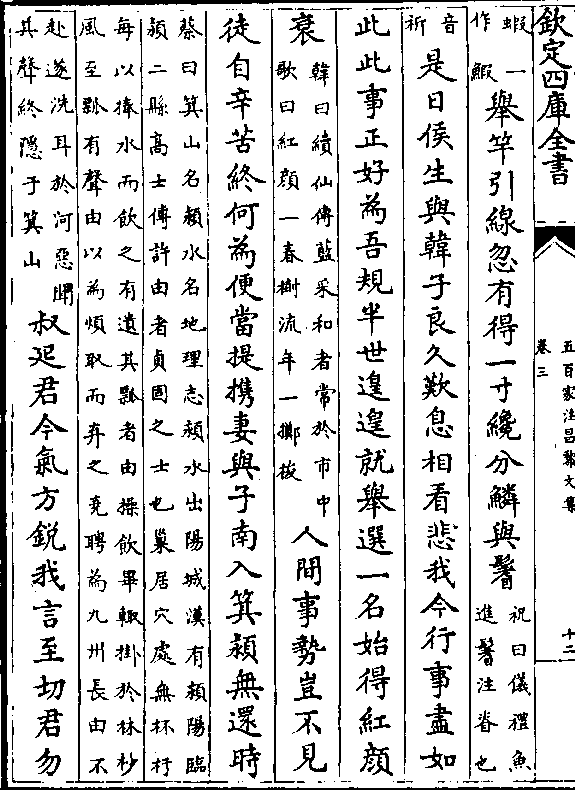 欽定四庫全書
五百家注昌黎文集
卷三
十二
蝦一
作鰕
舉竿引線忽有得一寸纔分鱗與鬐
祝曰儀禮魚
進鬐注脊也
音
祈
是日侯生與韓子良久歎息相看悲我今行事盡如
此此事正好為吾規半世遑遑就舉選一名始得紅顔
衰
韓曰續仙傳藍采和者常於市中
歌曰紅顔一春樹流年一擲梭
人間事勢豈不見
徒自辛苦終何為便當提攜妻與子南入箕潁無還時
蔡曰箕山名潁水名地理志潁水出陽城漢有潁陽臨
潁二縣髙士傳許由者貞固之士也巢居穴處無杯杅
每以捧水而飲之有遺其瓢者由操飲畢輙掛於林杪
風至瓢有聲由以為煩取而弃之堯聘為九州長由不
赴遂洗耳於河惡聞
其聲終隱于箕山
叔𨒪君今氣方鋭我言至切君勿